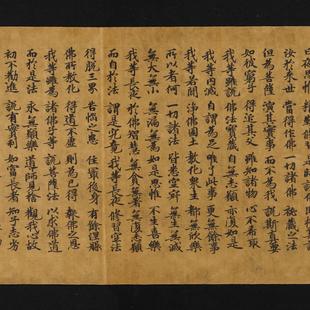 日夜思惟
汝於來世 當得作佛 一切諸佛 祕藏之法
但為菩薩 演其實事 而不為我 說斯真要
如彼窮子 得近其父 雖知諸物 心不希取
我等雖說 佛法寶藏 自無志願 亦復如是
我等內滅 自謂為足 唯了此事 更無餘事
我等若聞 淨佛國土 教化眾生 都無欣樂
所以者何 一切諸法 皆悉空寂 無生無滅
無大無小 無漏無為 如是思惟 不生喜樂
我等長夜 於佛智慧 無貪無著 無復志願
而自於法 謂是究竟 我等長夜 修習空法
得脫三界 苦惱之患 住最後身 有餘涅槃
佛所教化 得道不虛 則為已得 報佛之恩
我等雖為 諸佛子等 說菩薩法 以求佛道
而於是法 永無願樂 道師見捨 觀我心故
初不勸進 說有實利 如富長者 知子志劣